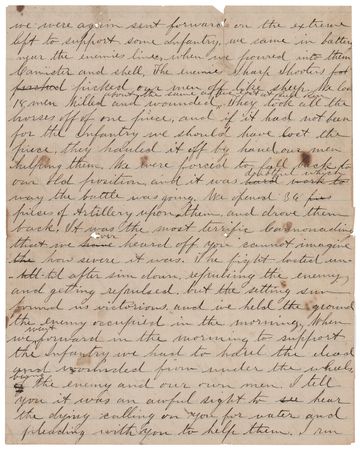 we were again sent forward on the extreme
left to support some Infantry, we came in battery
near the enemies lines, when we poured into them
Canister and shell. The enemie Sharp shooters
picked our men off like sheep. We lost
18 men killed and wounded. They took all the
horses off of one piece, and if it had not been
for the Infantry we should have lost the
piece, they hauled it off by hand our men
helping them. We were forced to fall back to
our old position and it was doubtful which
way the battle was going. We opened 34
pieces of Artillery upon them, and drove them
back. It was the most terrific Cannonading
that we ever heard off you cannot imagine
how severe it was. The fight lasted un-
till after sun down, repulsing the enemy,
and getting repulsed. but the setting sun
found us victorious, and we held the ground
the enemy occupied in the morning. When
we went forward in the morning to support
the Infantry we had to haul the dead
and wounded from under the wheels
the enemy and our own men. I tell
you it was an awful sight to hear
the dying calling on you for water and
pleading with you to help them. I